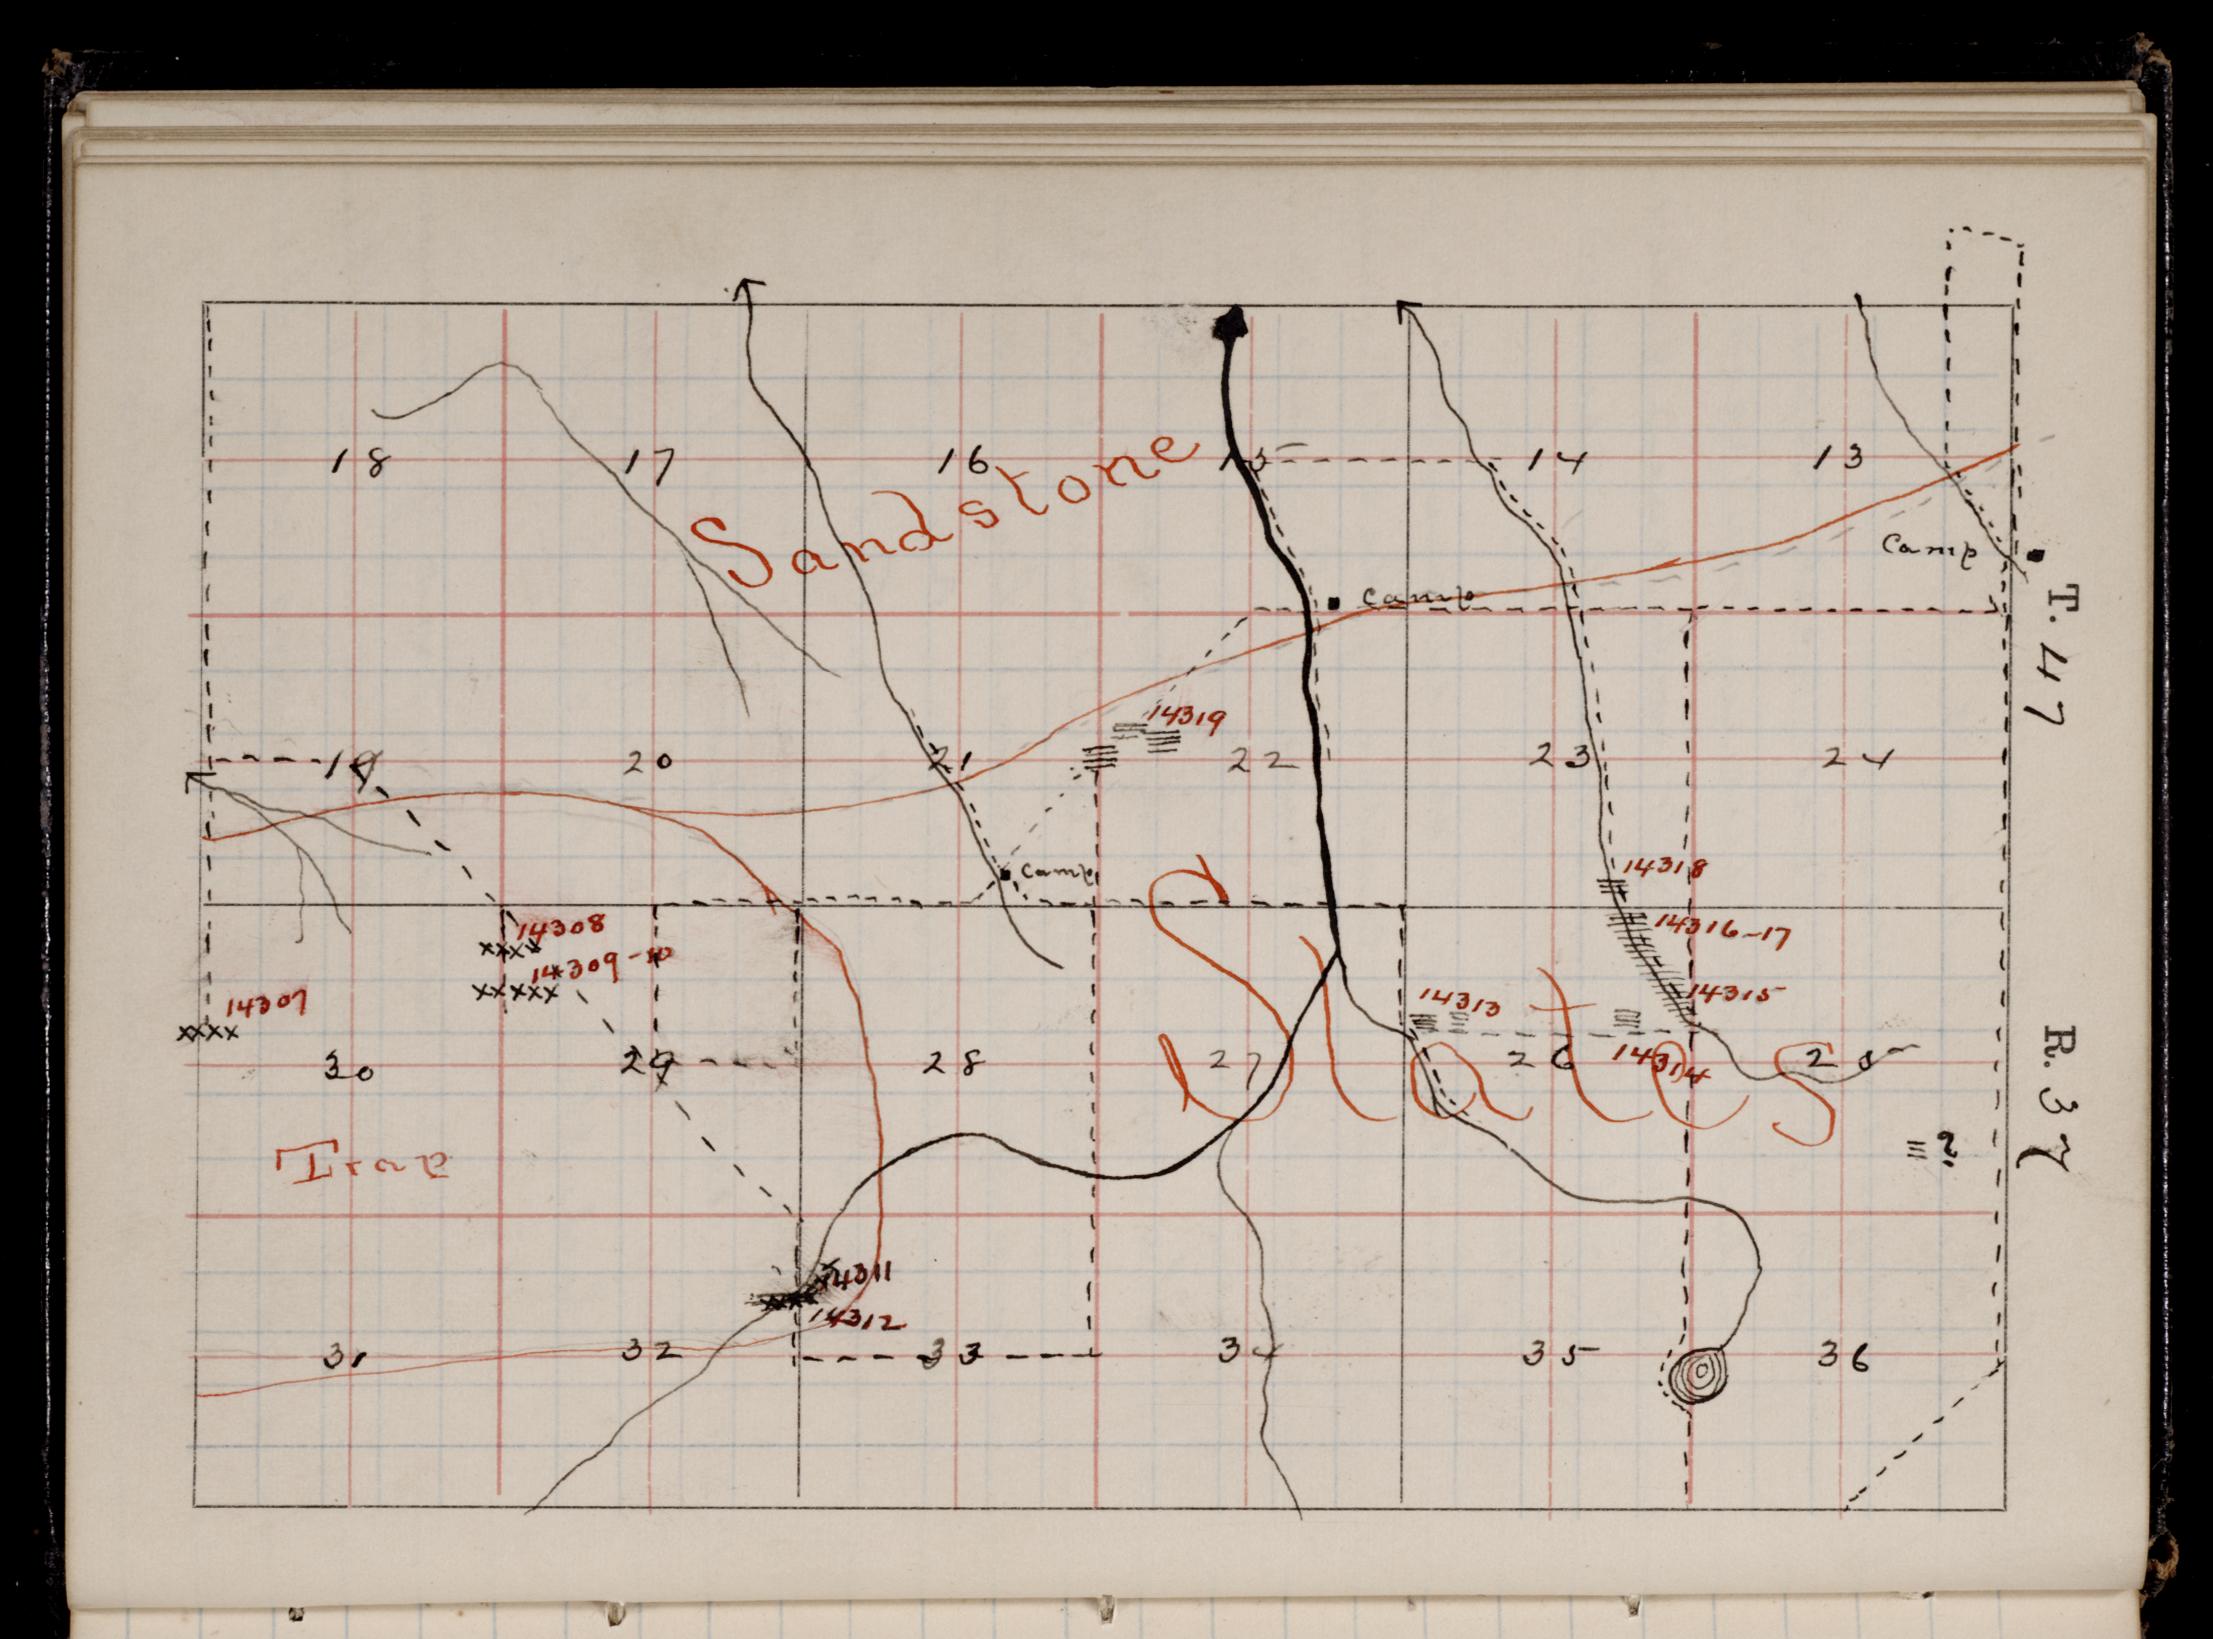 18 17 16 15 14 13
Sandstone
Camp
Camp
T. 47
14319
19 20 21 22 23 24
Camp
14318
14308
14316-17
14309-10
14307
14313
14315
30 29 28 27 26 25
14314
Slates
R. 37
?
Trap
14311
14312
31 32 33 34 35 36